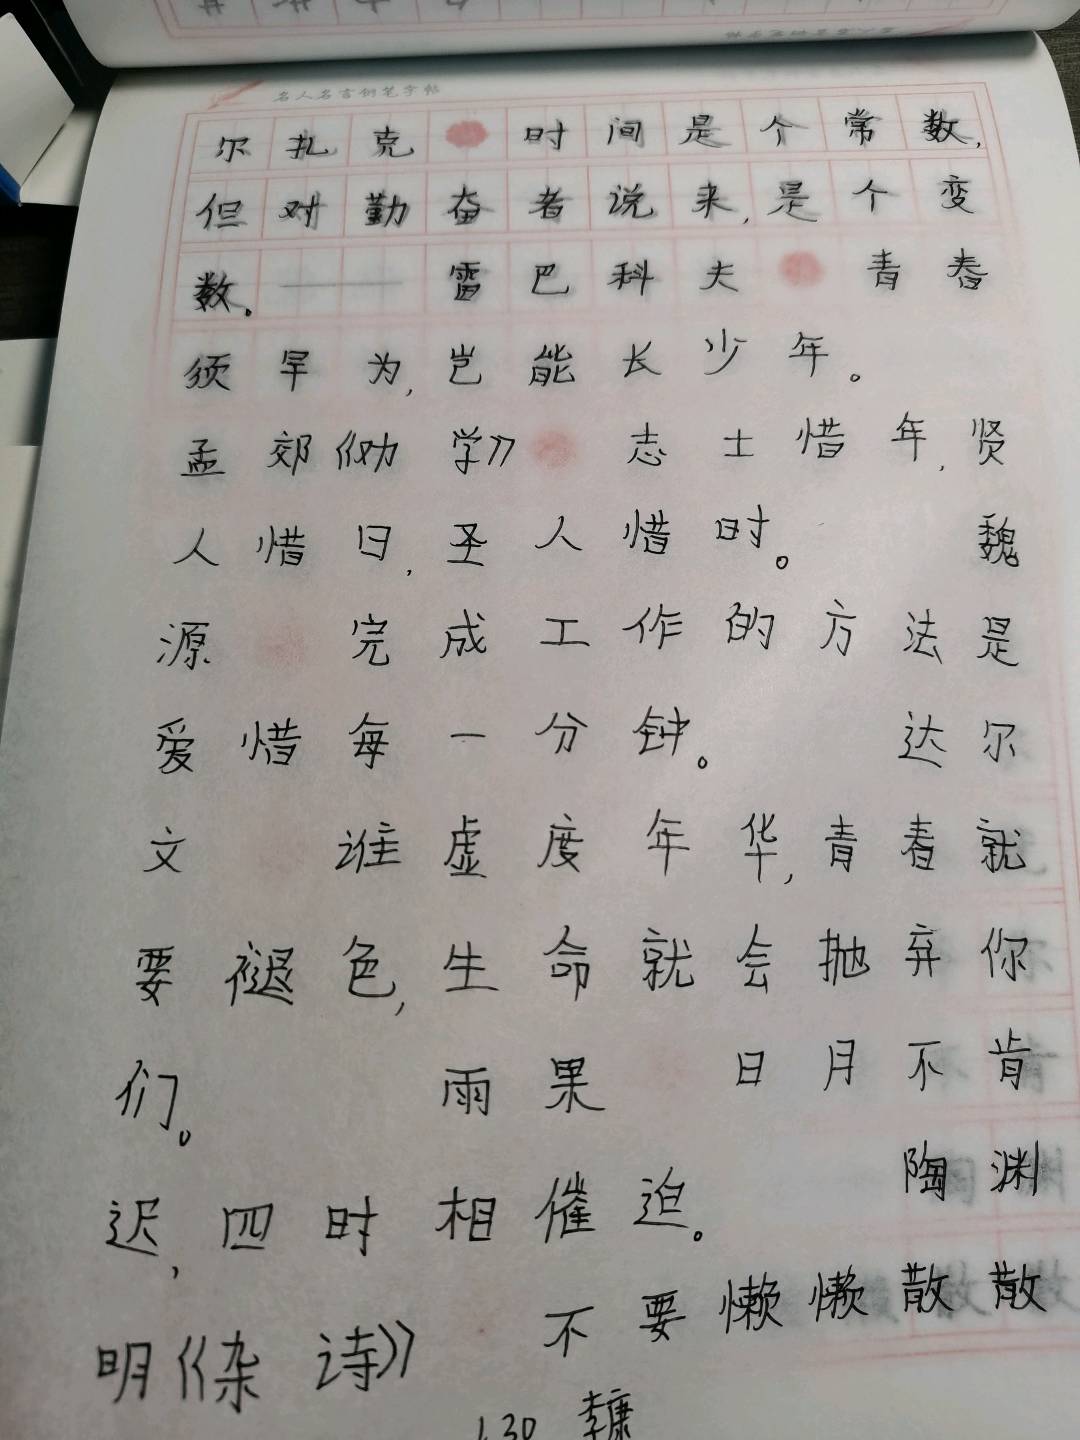 名人名言钢笔字帖
尔扎克 时间是个常数,
但对勤奋者说来,是个变
数。——雷巴科夫 青春
须早为,岂能长少年。
孟郊《劝学》 志士惜年,贤
人惜日,圣人惜时。 魏
源 完成工作的方法是
爱惜每一分钟。 达尔
文 谁虚度年华,青春就
要褪色,生命就会抛弃你
们。 雨果 日月不肯
迟,四时相催迫。 陶渊
明《杂诗》 不要懒懒散散
1.30 李